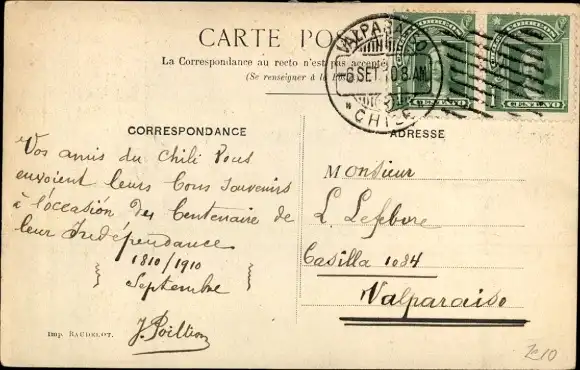 CARTE PO
La Correspondance au recto n'est pas accepté
(Se renseigner à la
VALPARAISO
6 SET. 10 8 AM
CHILE
CORREOS
CORREOS
1 CENTAVO
1 CENTAVO
CORRESPONDANCE
ADRESSE
Vos amis du Chili Vous
envoient leurs bons souvenirs
à l'occasión du Centenaire de
leur Indépendance
1810/1910
Septembre
J. Poillion
Monsieur
L. Lefebvre
Casilla 1034
Valparaiso
Imp. RACHELOT.
Ze10